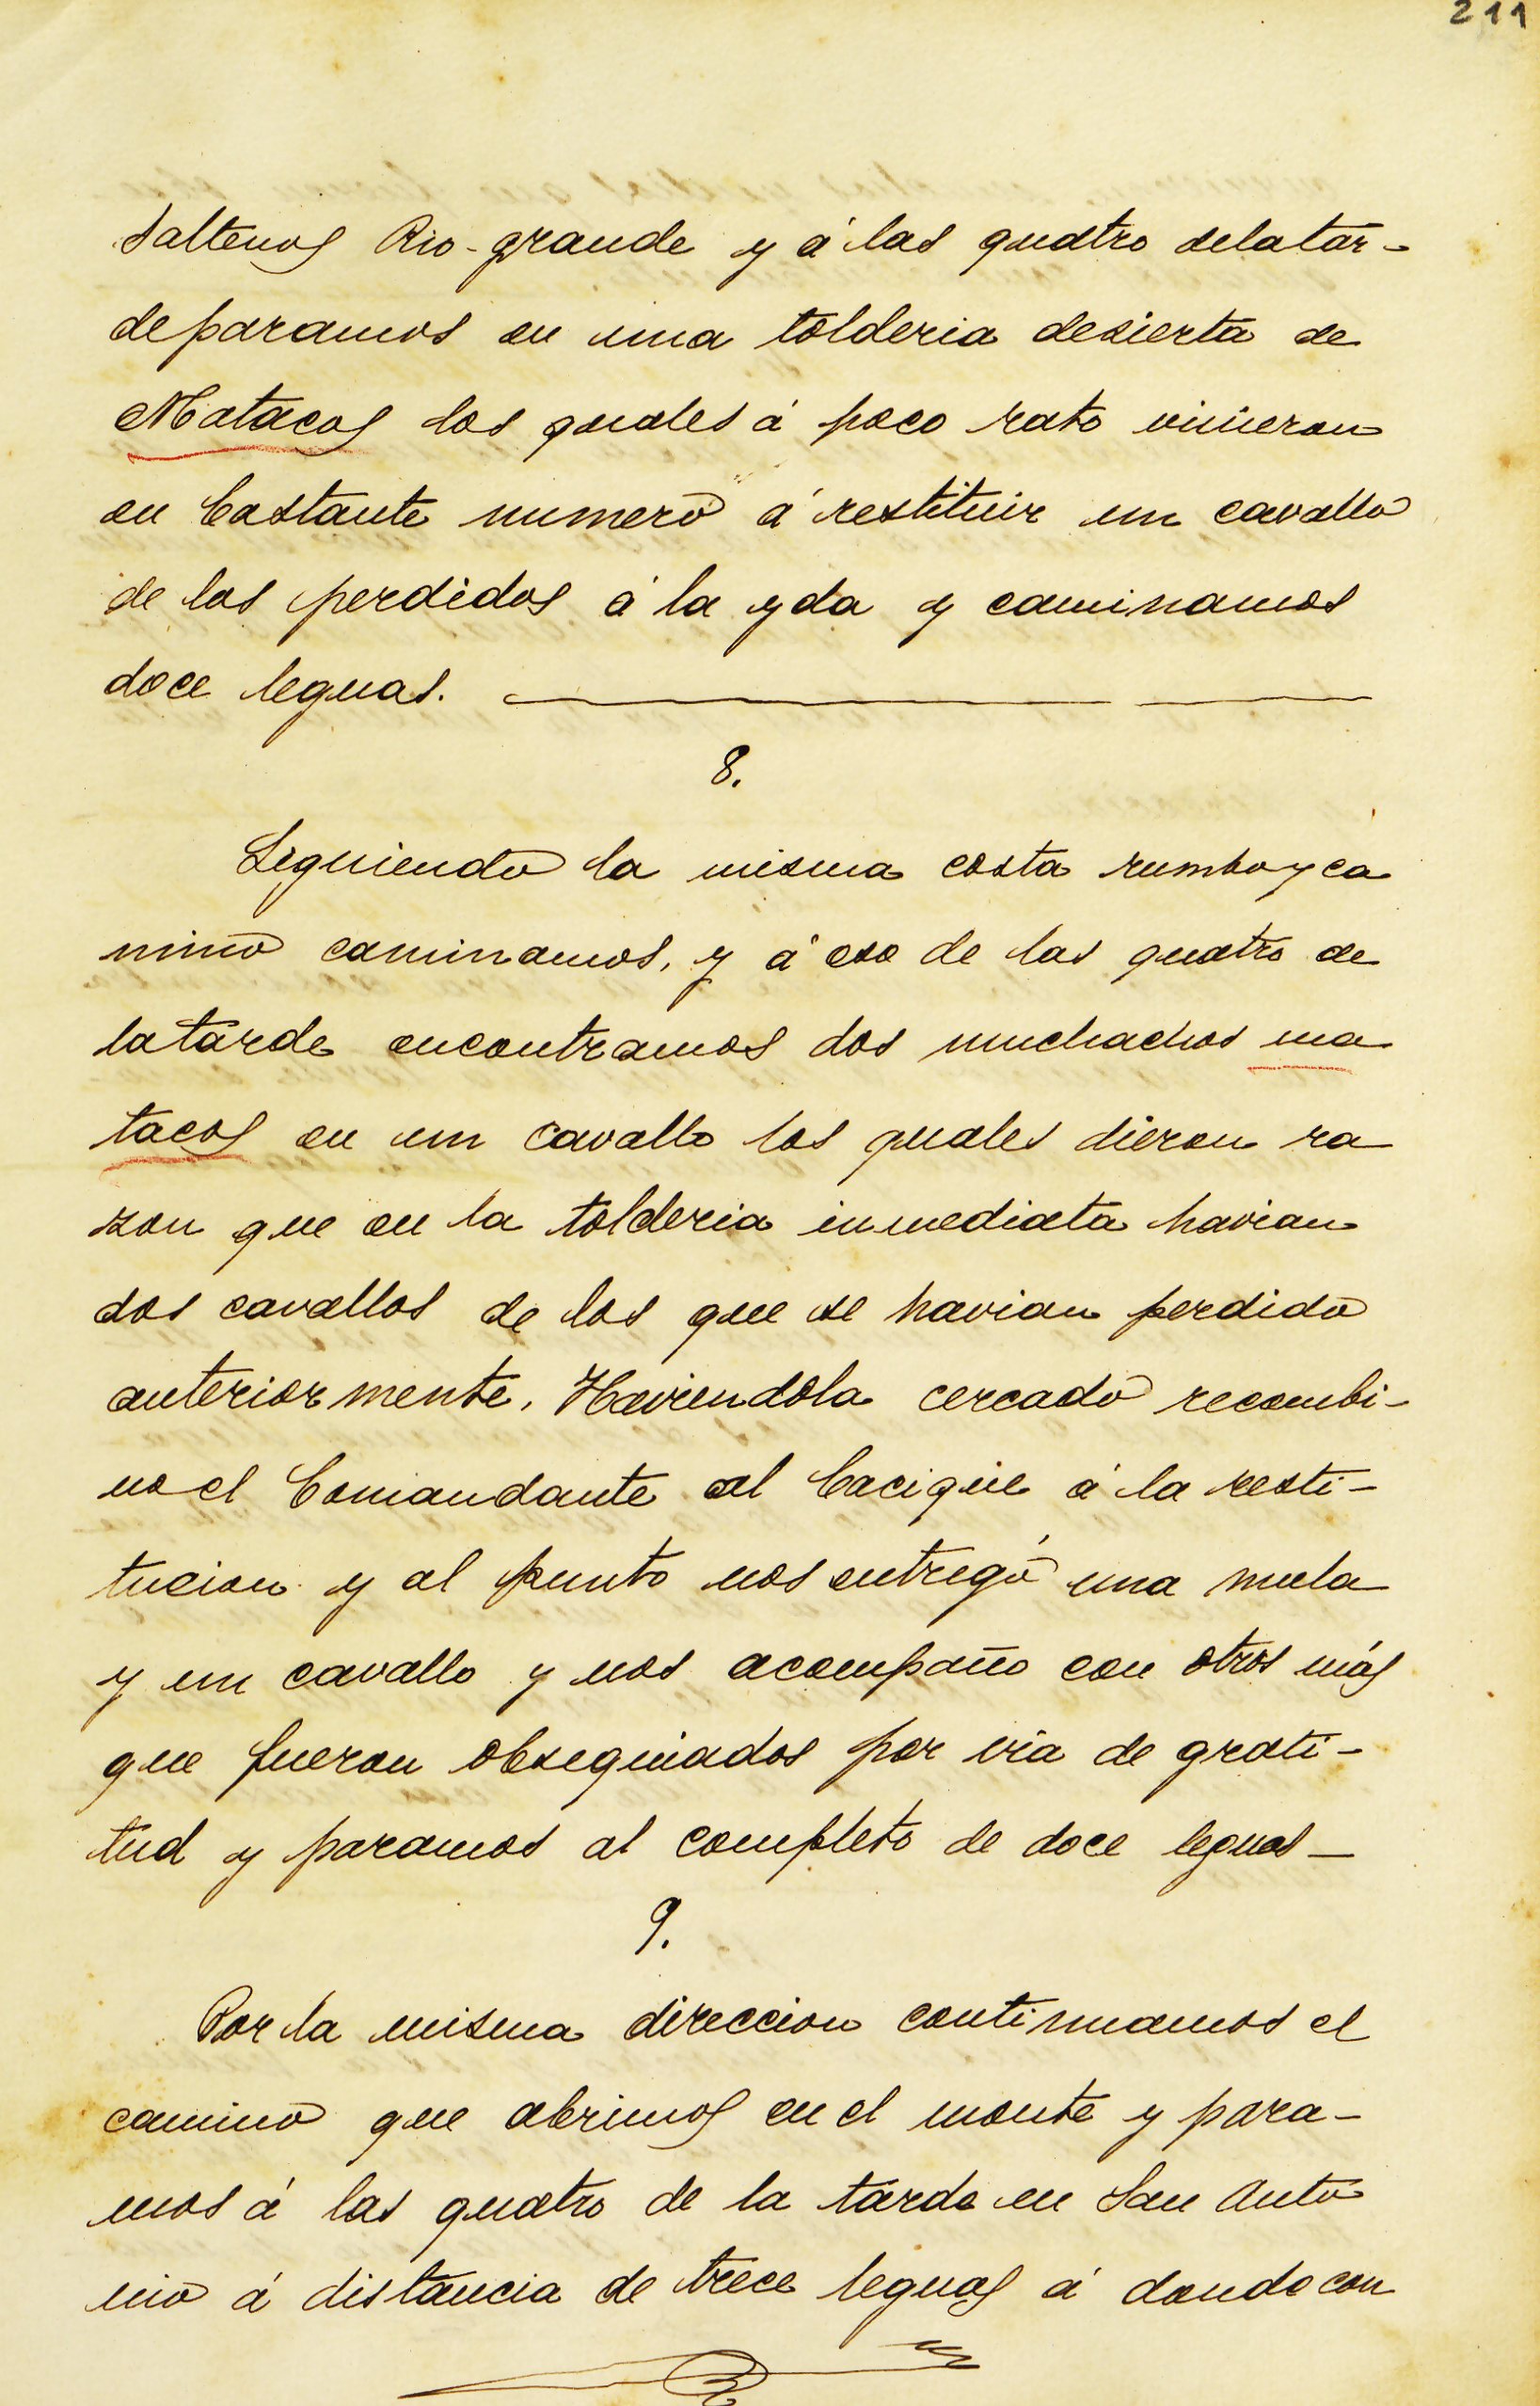 211
Saltenos Rio-grande y á las quatro delatar-
deparamos en una tolderia desierta de
Matacos los quales á poco rato vinieron
en bastante numero á restituir un cavallo
de los perdidos á la yda y caminamos
doce leguas.
8.
Siguiendo la misma costa rumbo y ca
mino caminamos, y á eso de las quatro de
latarde encontramos dos muchachos ma
tacos en un cavallo los quales dieron ra
zon que en la tolderia inmediata havian
dos cavallos de los que se havian perdido
anteriormente. Haviendola cercado recombi-
no el Comandante al Cacique á la resti-
tucion y al punto nos entregó una mula
y un cavallo y nos acompaño con otros más
que fueron obsequiados por via de grati-
tud y paramos al completo de doce leguas—
9.
Por la misma direccion continuamos el
camino que abrimos en el monte y para-
mos á las quatro de la tarde en San Anto
nio á distancia de trece leguas á donde con